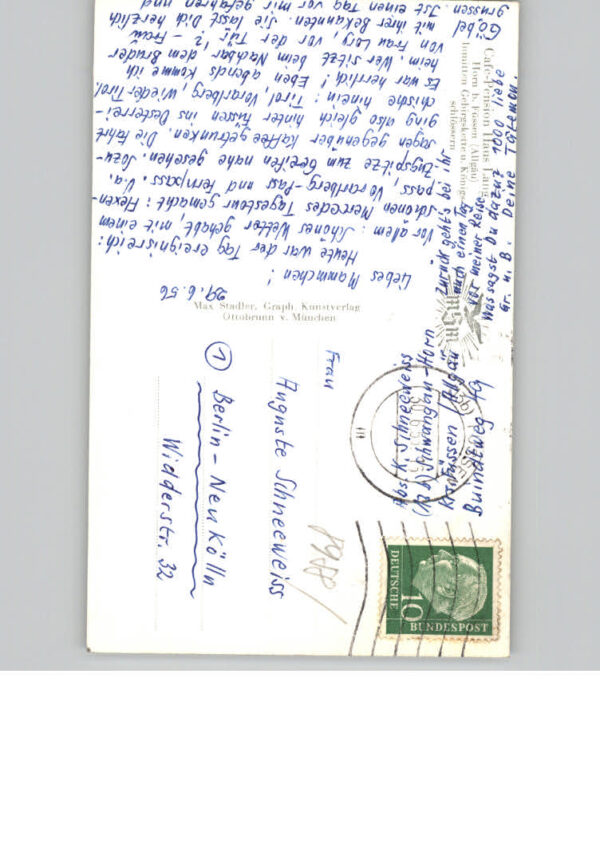 29.6.56
Liebes Mammchen!
Heute war der Tag ereignisreich:
Vor allem: Schönes Wetter gehabt, mit einem
schönen Mercedes Tagestour gemacht: Flexen-
pass, Vorarlberg-Pass und Fernpass. U.a.
Zugspitze zum Greifen nahe gesehen. Sozu-
sagen gegenüber Kaffee getrunken. Die Fahrt
ging also gleich hinter Füssen ins Oesterrei-
chische hinein: Tirol, Vorarlberg, wieder Tirol.
Es war herrlich! Eben abends komme ich
heim. Wer sitzt beim Nachbar dem Bruder
von Frau Lory, vor der Tür!? – Frau
Göbel mit ihrer Bekannten. Sie lässt Dich herzlich
grüssen. Ist einen Tag vor mir gefahren und
zurück geht's bei ihr
auch einen Tag
vor meiner Reise.
Was sagst Du dazu? 1000 liebe
Gr. u. B. Deine
Café-Pension Haus Lang
Horn b. Füssen (Allgäu)
Inmitten Gebirgskette u. Königs-
schlössern
Max Stadler, Graph. Kunstverlag
Ottobrunn v. München
Abs. K. Schneeweiss
(13b) Schwangau-Horn
Krs. Füssen / Allgäu
Frau
Auguste Schneeweiss
① Berlin-Neukölln
Widderstr. 32
DEUTSCHE
BUNDESPOST
10